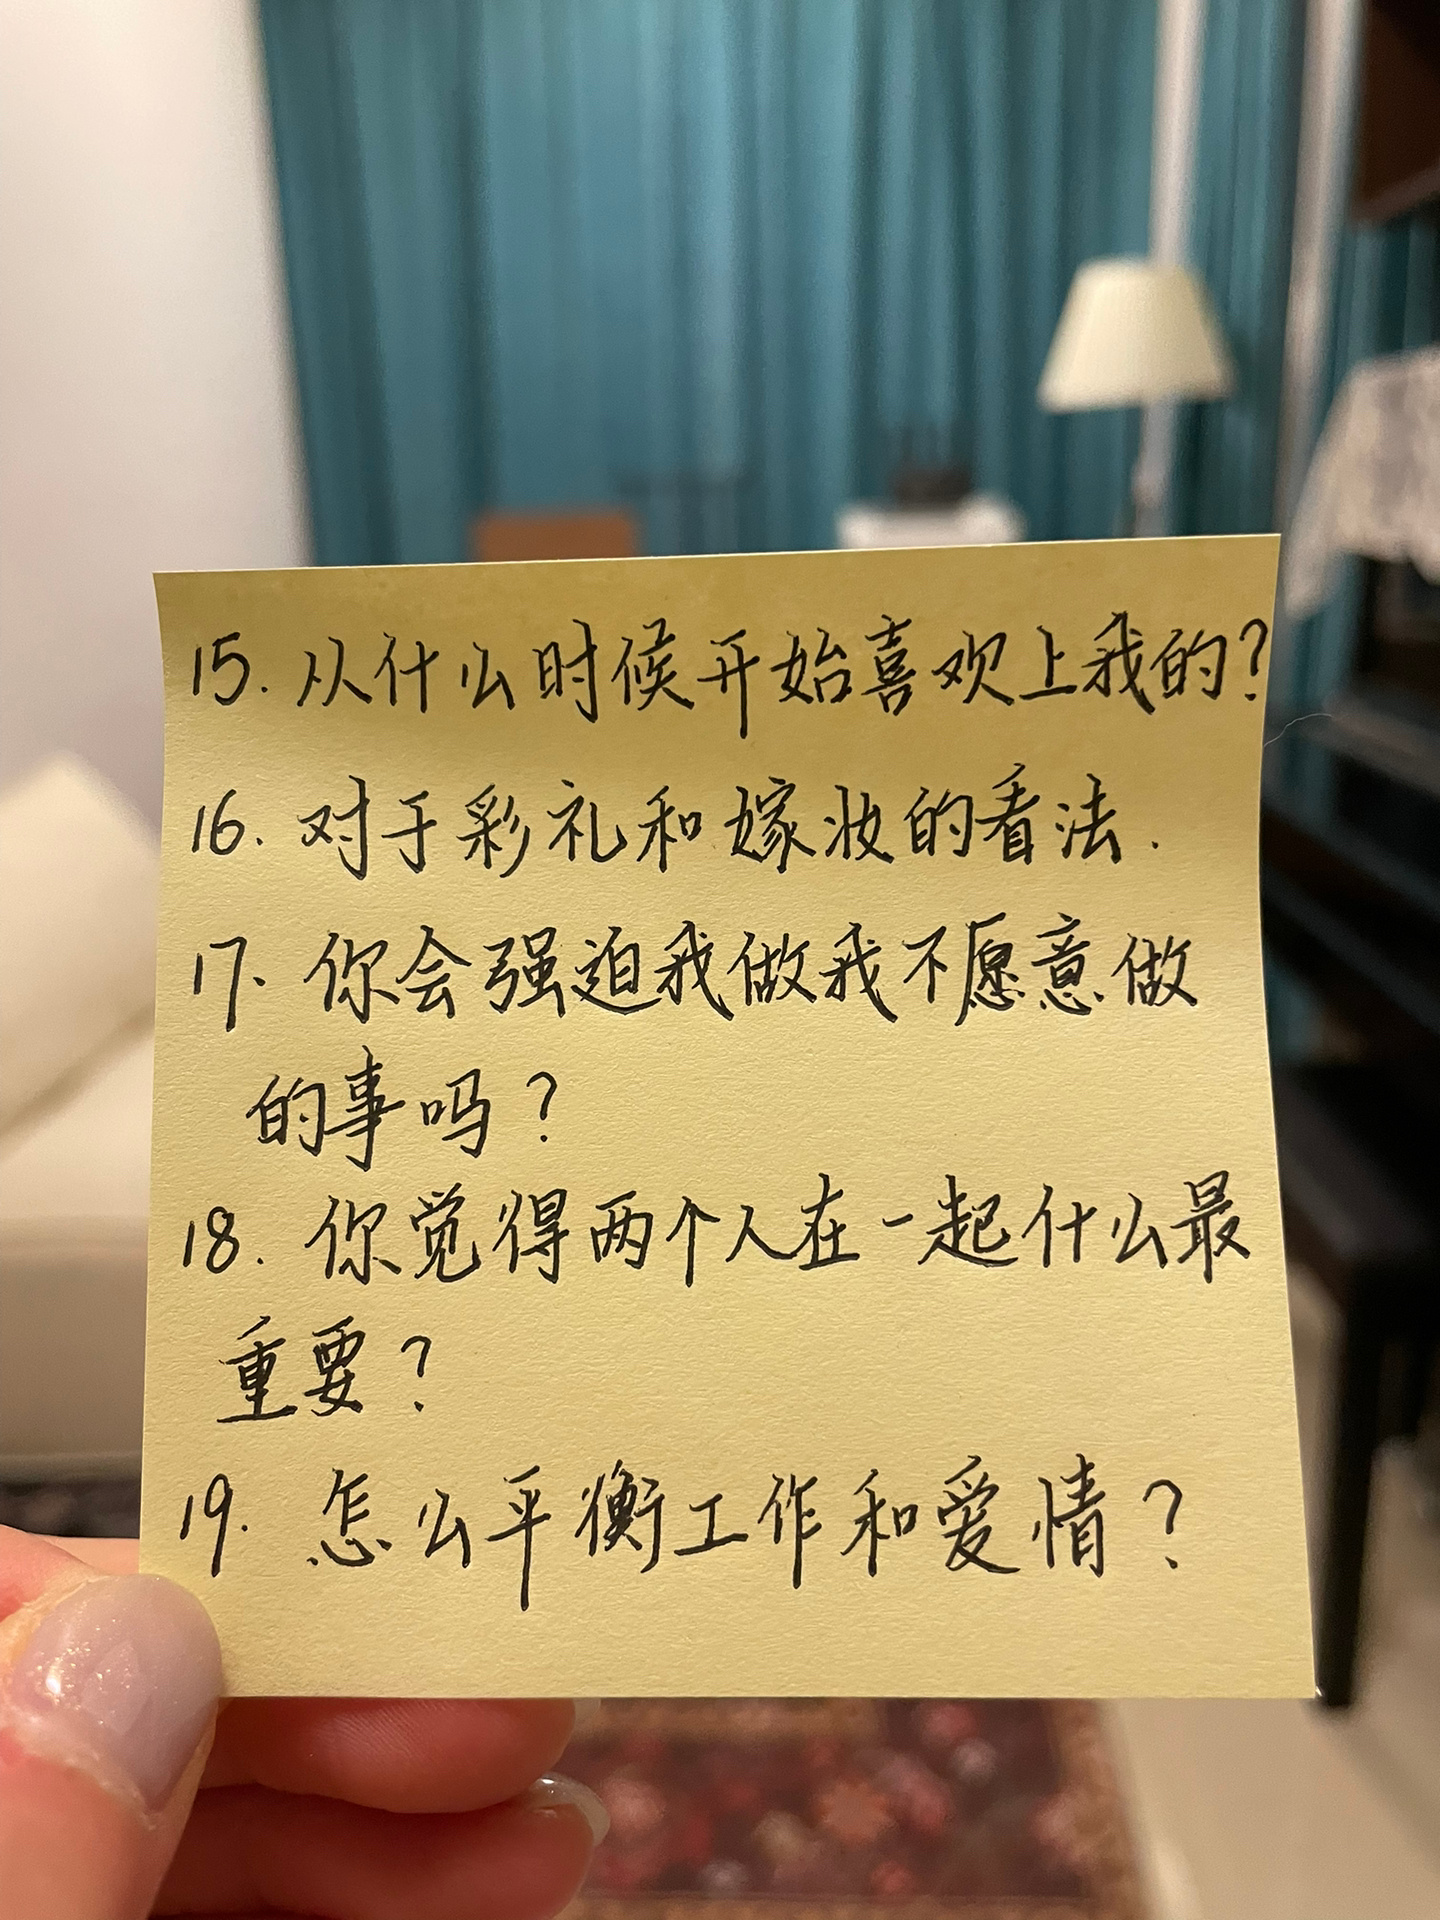 15. 从什么时候开始喜欢上我的?
16. 对于彩礼和嫁妆的看法.
17. 你会强迫我做我不愿意做
的事吗?
18. 你觉得两个人在一起什么最
重要?
19. 怎么平衡工作和爱情?